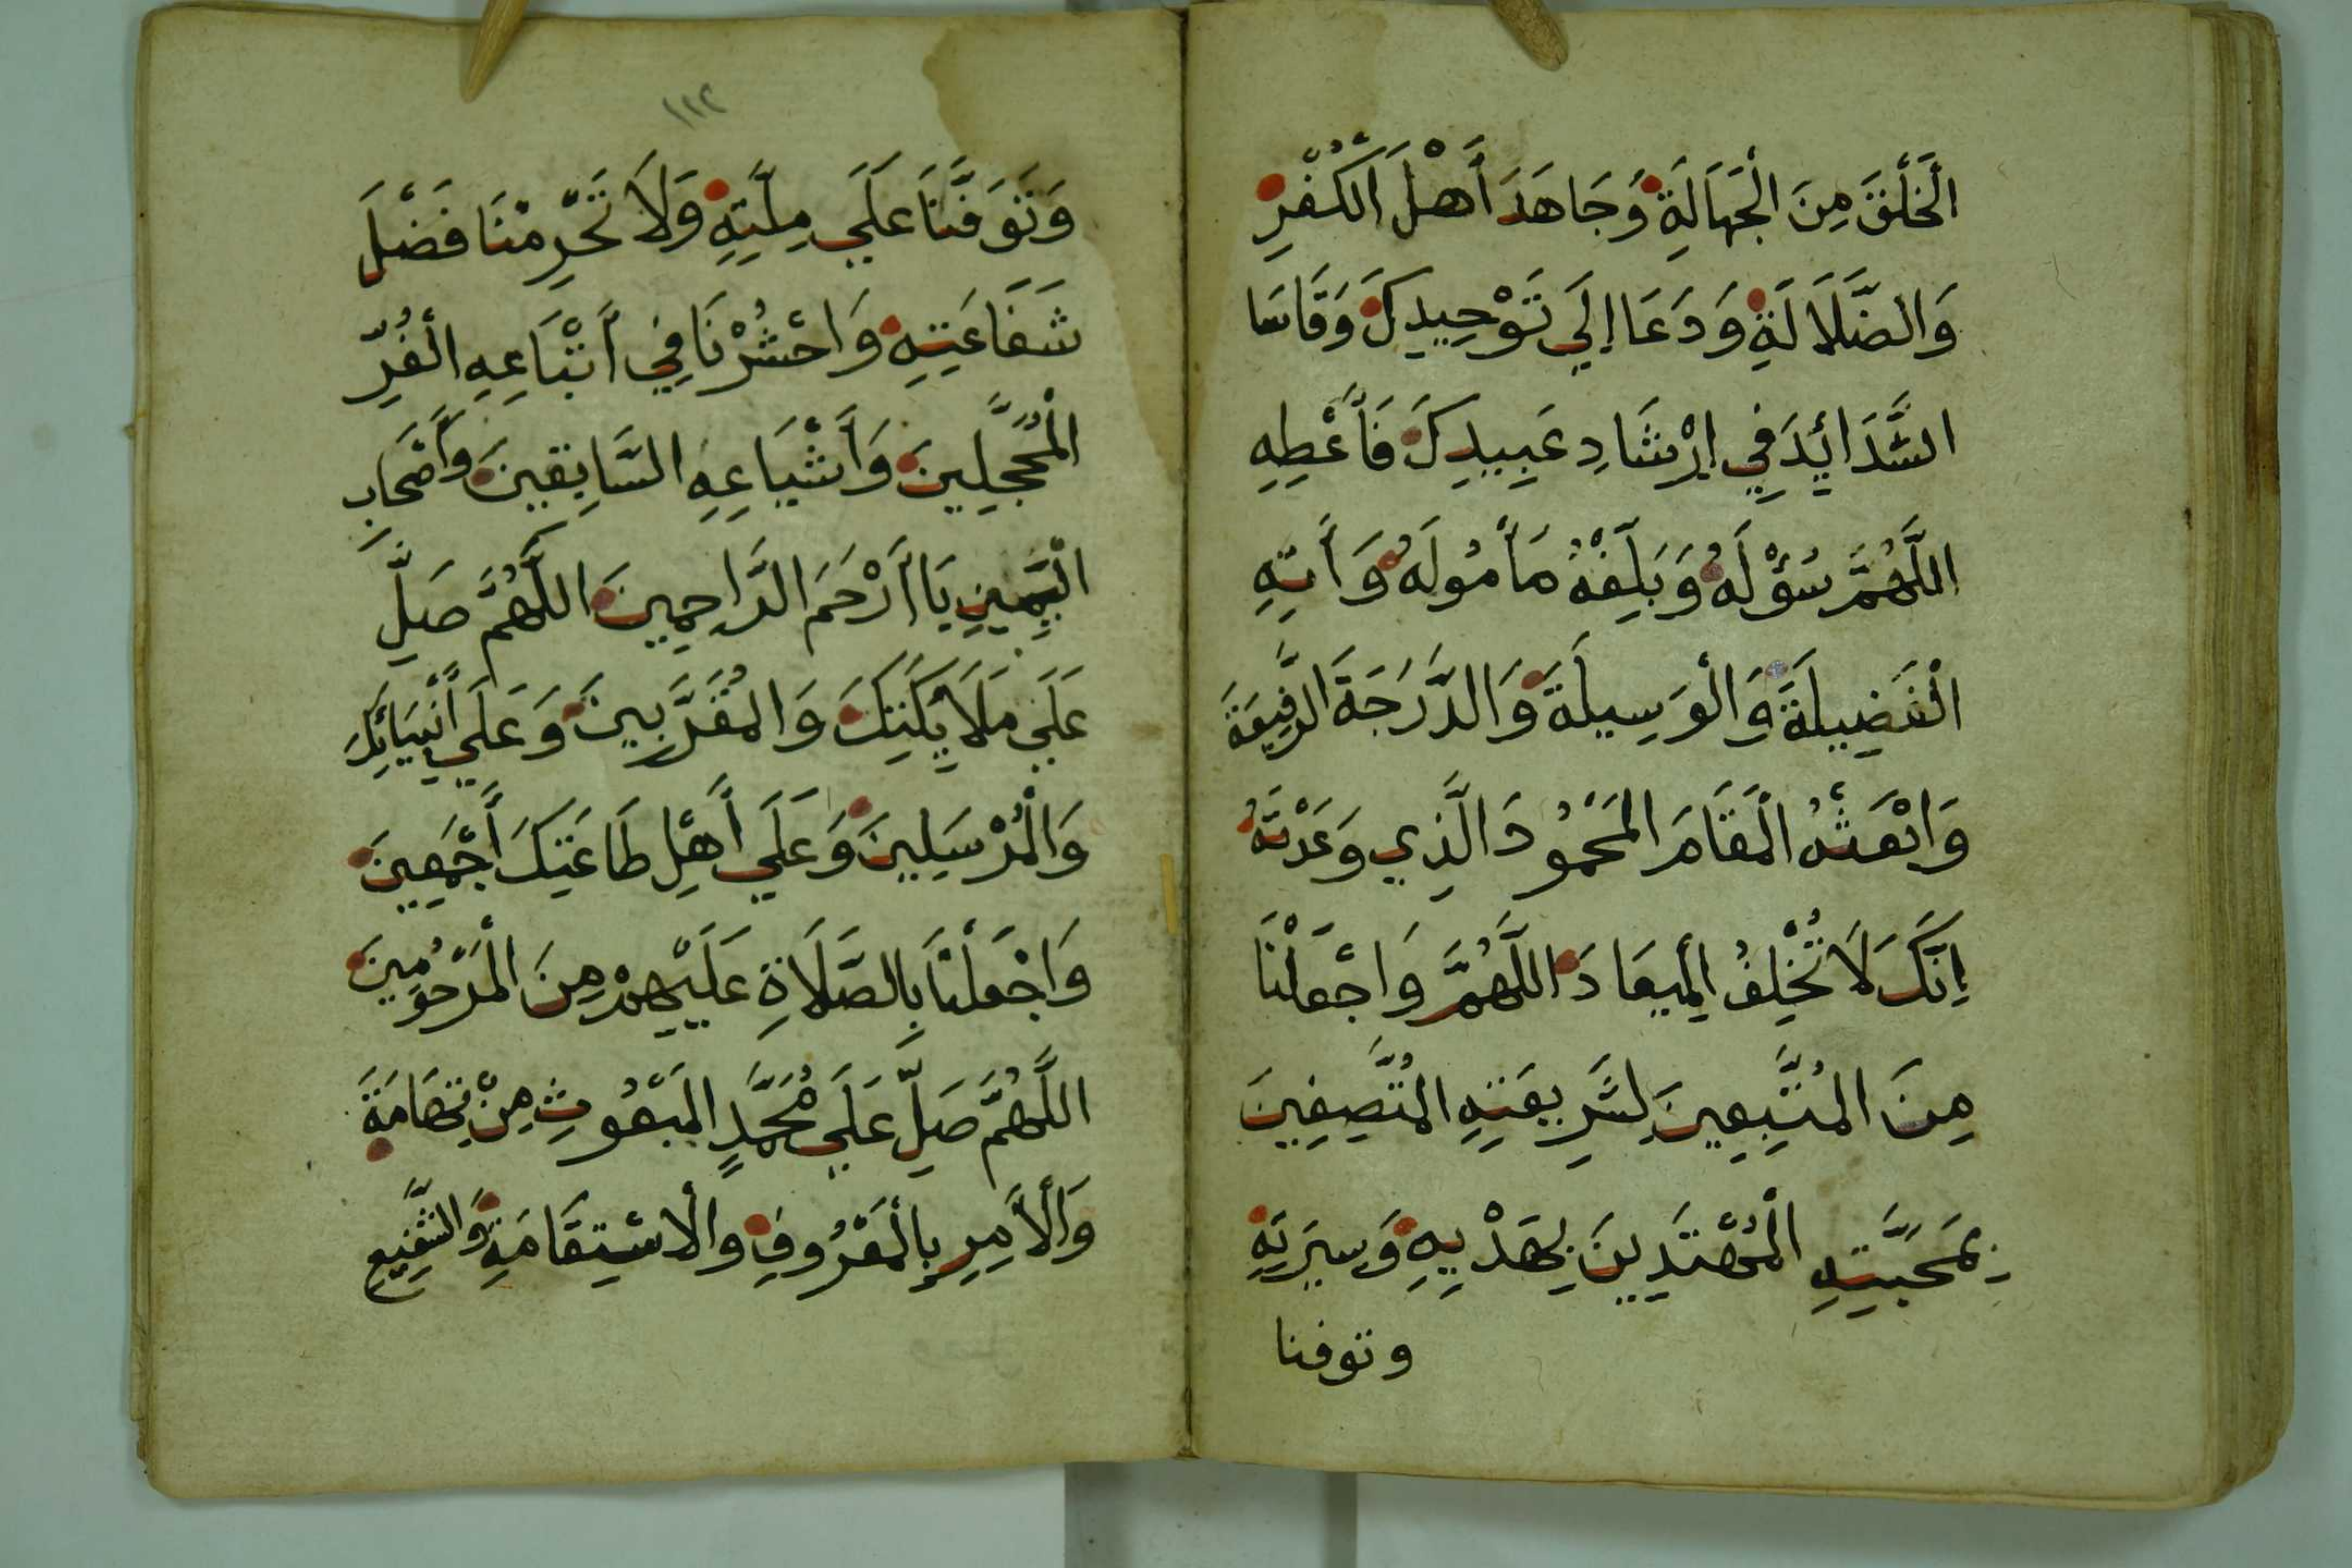 الْخَلْقَ مِنَ الْجَهَالَةِ وَجَاهَدَ أَهْلَ الْكُفْرِ
وَالضَّلَالَةِ وَدَعَا إِلَي تَوْحِيدِكَ وَقَاسَا
الشَّدَائِدَ فِي اِرْشَادِ عَبِيدِكَ فَأَعْطِهِ
اللَّهُمَّ سُؤْلَهُ وَبَلِّغْهُ مَأْمُولَهُ وَأَتِهِ
الْفَضِيلَةَ وَالْوَسِيلَةَ وَالدَّرَجَةَ الرَّفِيعَةَ
وَابْعَثْهُ الْمَقَامَ الْمَحْمُودَ الَّذِي وَعَدْتَهُ
اِنَّكَ لَا تُخْلِفُ الْمِيعَادَ اللَّهُمَّ وَاجْعَلْنَا
مِنَ الْمُتَّبِعِينَ لِشَرِيعَتِهِ الْمُتَّصِفِينَ
بِمَحَبَّتِهِ الْمُهْتَدِينَ بِهَدْيِهِ وَسِيرَتِهِ
وتوفنا
١١٢
وَتَوَفَّنَا عَلَي مِلَّتِهِ وَلَا تَحْرِمْنَا فَضْلَ
شَفَاعَتِهِ وَاحْشُرْنَا فِي أَتْبَاعِهِ الْغُرِّ
الْمُحَجَّلِينَ وَأَشْيَاعِهِ السَّابِقِينَ وَأَصْحَابِ
الْيَمِينِ يَا أَرْحَمَ الرَّاحِمِينَ اللَّهُمَّ صَلِّ
عَلَي مَلَايِكَتِكَ وَالْمُقَرَّبِينَ وَعَلَي أَنْبِيَائِكَ
وَالْمُرْسَلِينَ وَعَلَي أَهْلِ طَاعَتِكَ أَجْمَعِينَ
وَاجْعَلْنَا بِالصَّلَاةِ عَلَيْهِمْ مِنَ الْمَرْحُومِينَ
اللَّهُمَّ صَلِّ عَلَي مُحَمَّدٍ الْمَبْعُوثِ مِنْ تِهَامَةَ
وَالْأَمِرِ بِالْمَعْرُوفِ وَالْاسْتِقَامَةِ وَالشَّفِيعِ